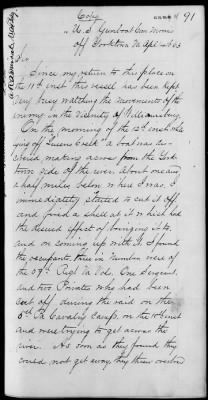 Copy
91
U.S. Gunboat Com. Morris
off Yorktown Va April 63
Sir
Since my return to this place on
the 11th inst this vessel has been kept
very busy watching the movements of the
enemy in the vicinity of Williamsburg.
On the morning of the 12th inst while
lying off Queens Creek a boat was dis-
covered making across from the York-
town side of the river about
a half miles below where I was. I
immediately started to cut it off
and fired a shell at it which had
the desired effect of bringing it to,
and on coming up with it I found
the occupants, three in number were of
the 59th Regt Va Vols. One Sergeant
and two Privates who had been
cut off during the raid on the
5th Pa Cavalry Camp, on the 10th inst
and were trying to get across the
river. As soon as they found they
could not get away they threw overboard